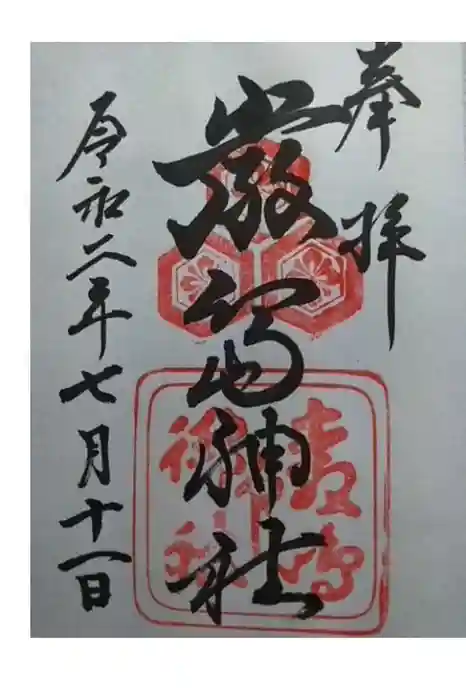 奉拝
厳島神社
令和二年七月十一日